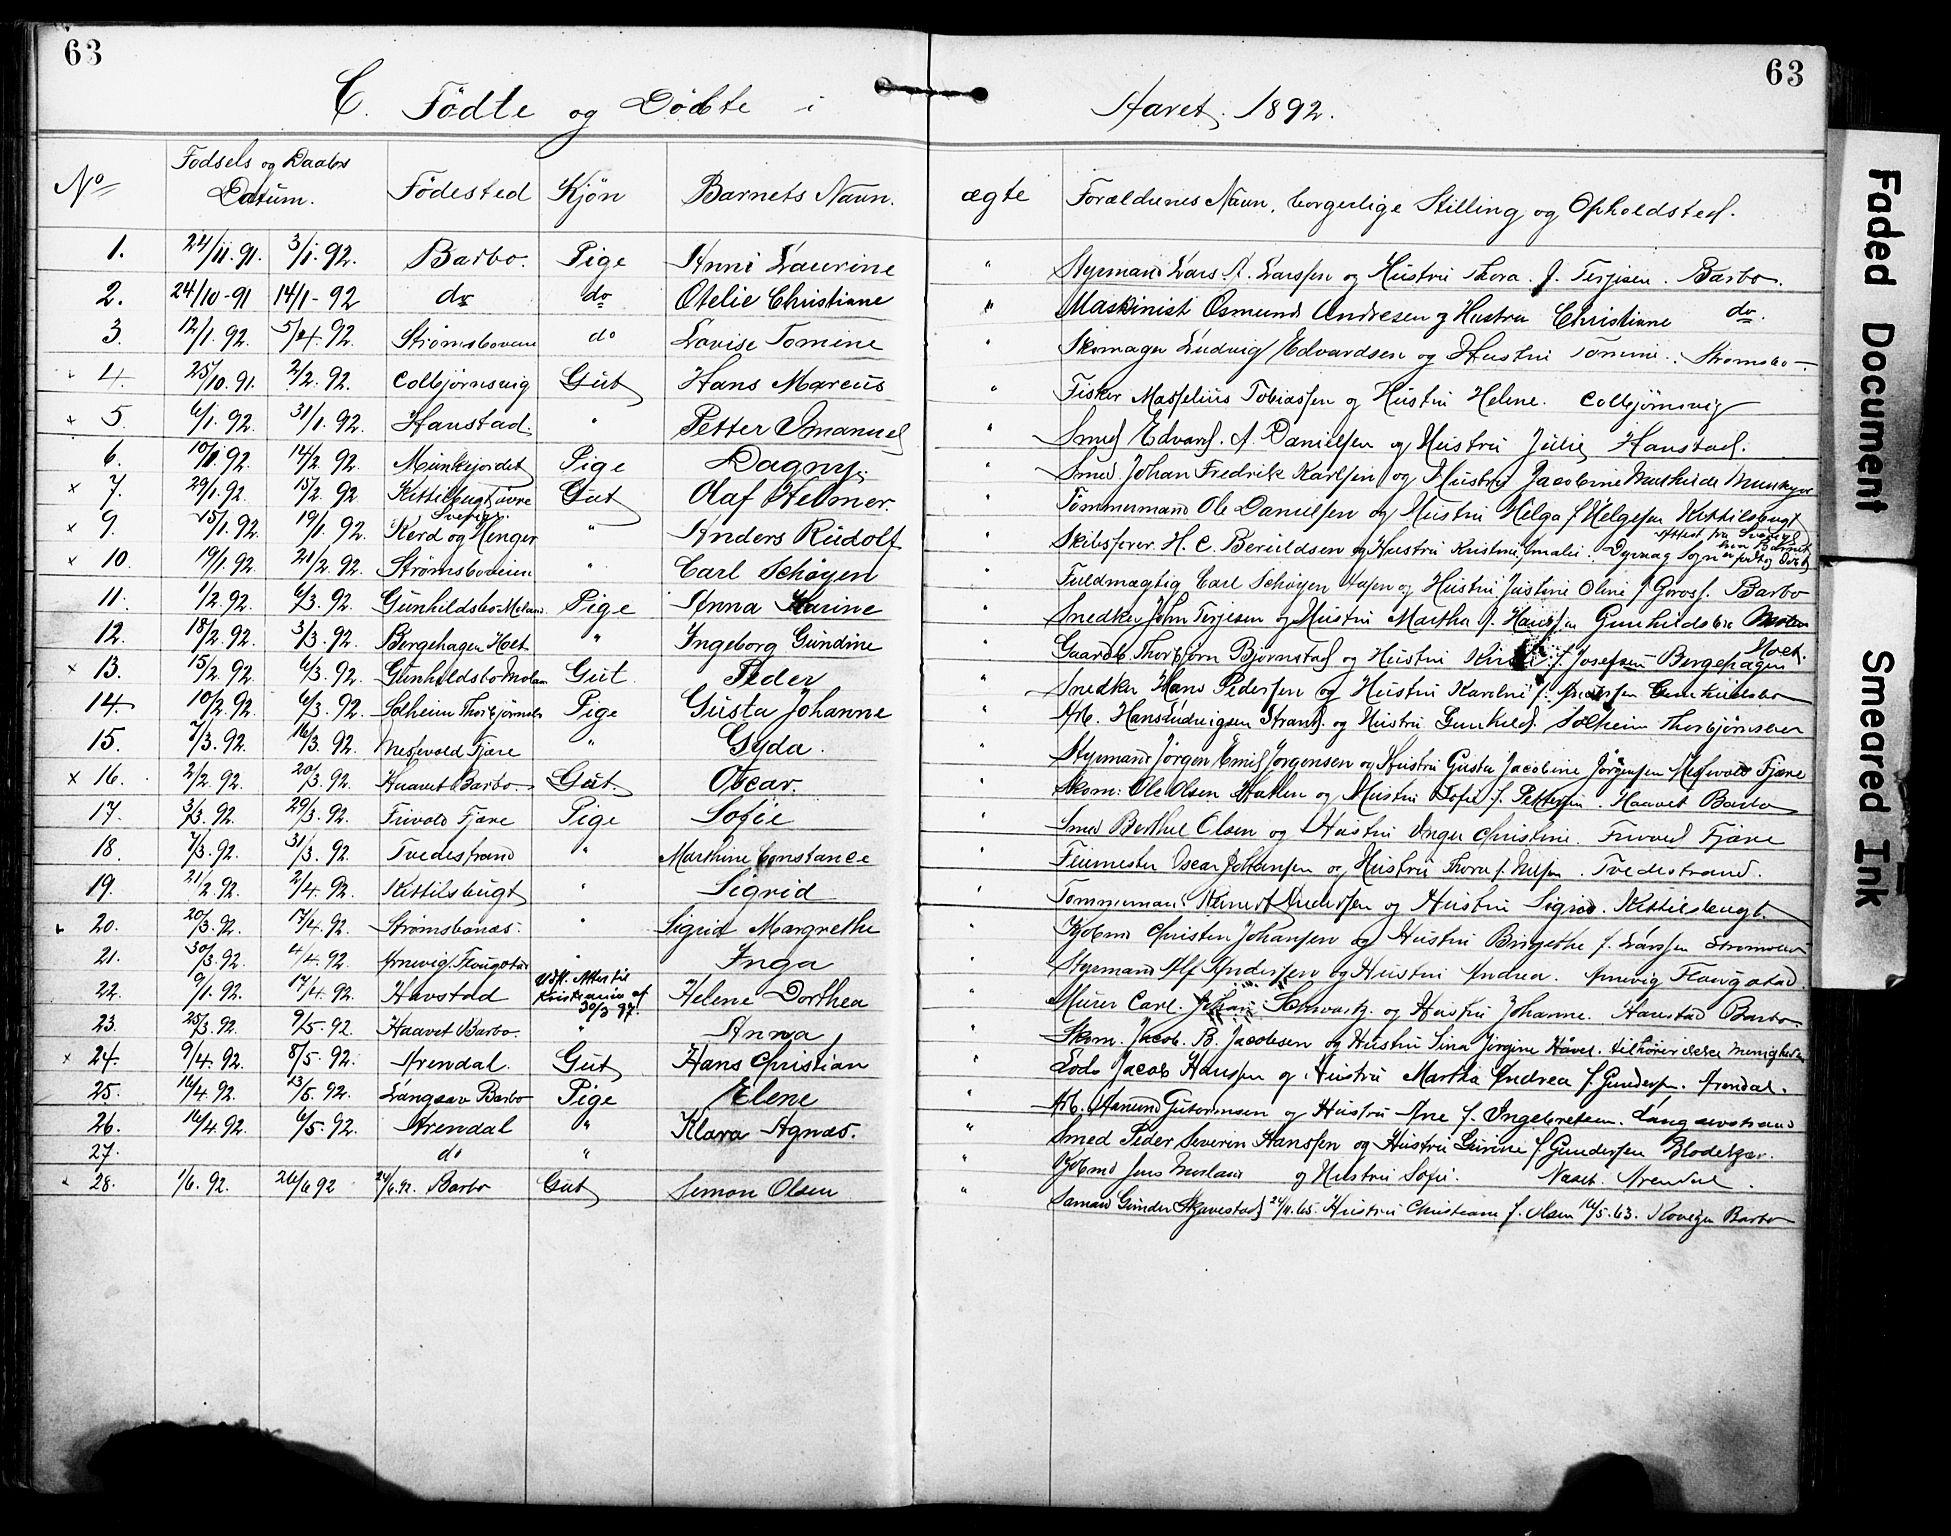 63 63
C. Födte og Döbte i Aaret 1892.
No Fødsels og Daabs Datum. Födested Kjön Barnets Navn. ægte Forældrenes Navn, borgerlige Stilling og Opholdsted.
1. 24/11.91. 3/1.92. Barbo. Pige Anni Laurine " Styrmand Lars A. Larssen og Hustru Thora f. Terjesen. Barbo.
2. 24/10-91 14/1-92 do do Otelie Christiane " Maskinist Osmund Andresen og Hustru Christiane do.
3. 12/1.92. 5/4.92. Strømsboveien do Lovise Tomine " Skomager Ludvig Edvardsen og Hustru Tomine. Strømsbo
4. 25/10.91. 2/2.92. Colbjørnsvig Gut Hans Marcus " Fisker Masselius Tobiassen og Hustru Helene. Colbjörnsvig
x 5. 6/1.92. 31/1.92. Havstad " Petter Emanuel " Smed Edvard A. Danielsen og Hustru Julie Havstad.
6. 10/1.92. 14/2.92. Munkejordet Pige Dagny. " Smed Johan Fredrik Karlsen og Hustru Jacobine Munkejor
x 7. 29/1.92. 15/2.92. Kittilsbugt øvre Gut Olaf Helmer. " Tømmermand Ole Danielsen og Hustru Helga f Helgesen Kittilsbugt
x 9. 15/1.92. 19/1.92. Kerd og Henger Sverige. " Anders Rudolf " Skibsfører H. C. Beruldsen og Hustru Kristine Amalie. Sogn Attest fra Sverige
x 10. 19/1.92. 21/2.92. Strømsboveien " Carl Schøyen " Fuldmægtig Carl Schøyen og Hustru Justine Oline f Barbo
11. 1/2.92. 6/3.92. Gunhildsbo Moland Pige Anna Karine " Snedker John Terjesen og Hustru Martha f. Hanssen Gunhildsbo Moland
12. 18/2.92. 3/3.92. Bergehagen Hoet " Ingeborg Gundine " Gaardb. Thorbjörn Bjørnstad og Hustru f. Josefsen Bergehagen Hoet.
x 13. 15/2.92. 6/3.92. Gunhildsbo Moland Gut. Peder " Snedker Hans Pedersen og Hustru Karoline f. Andersen Gunhildsbo
14. 10/2.92. 6/3.92. Solheim Thorbjørnsb Pige Gusta Johanne " Arb. Hans Ludvigsen Strand og Hustru Gunhild. Solheim Thorbjørnsbo
15. 7/3.92. 16/3.92. Nesevold Fjære " Gyda. " Styrmand Jörgen Emil Jörgensen og Hustru Gusta Jacobine Jörgensen Nesevold Fjære
x 16. 2/2.92. 20/3.92. Haavet Barbo Gut Oscar. " Skom. Ole Olsen og Hustru Sofie f. Pettersen. Haavet Barbo
17. 3/3.92. 29/3.92. Frivold Fjære Pige Sofie " Smed Berthel Olsen og Hustru Inger Christine. Frivold Fjære
18. 7/3.92. 31/3.92. Tvedestrand " Marthine Constance " Oscar Johansen og Hustru Thora f. Nilsen. Tvedestrand.
19. 21/2.92. 2/4.92. Kittilsbugt " Sigrid " Tømmermand Andersen og Hustru Sigrid. Kittilsbugt.
20. 20/3.92. 17/4.92. Strømsbonæs. " Sigrid Margrethe " Kjøbmd Christen Johansen og Hustru Birgethe f. Larssen
21. 30/3.92. 4/4.92. Arnevig Flaugstad " Inga " Styrmand Alf Andersen og Hustru Andrea. Arnevig Flaugstad
22. 9/1.92. 17/4.92. Havstad Udst. Attest til Kristiania af 30/3 97. Helene Dorthea Murer Carl Johan Schwartz og Hustru Johanne. Havstad Barbo.
23. 25/3.92. 9/5.92. Haavet Barbo. " Anna Skom. Jacob. B. Jacobsen og Hustru Sina Jörgine Håvet. tilhører ikke Menigheden
x 24. 9/4.92. 8/5.92. Arendal. Gut Hans Christian " Lods Jacob Hanssen og Hustru Martha Andrea f. Gundersen. Arendal.
25. 16/4.92. 23/5.92. Langsæv Barbo Pige Elene " Arb. Aanund Gutormsen og Hustru Ane f. Ingebretsen. Langsævstrand
26. 16/4.92. 6/5.92. Arendal " Klara Agnæs. " Smed Peder Severin Hanssen og Hustru f. Gundersen Blodekjær.
27. do " " Kjøbmd Jens og Hustru Sofie. Næset. Arendal.
28. 1/6.92. 26/6 92 24/6.92. Barbo Gut Simon Olsen " Sømand Gunder Skjævestad 24/11.65. Hustru Christiane f. Olsen 16/5.63. Barbo
Faded Document
Smeared Ink